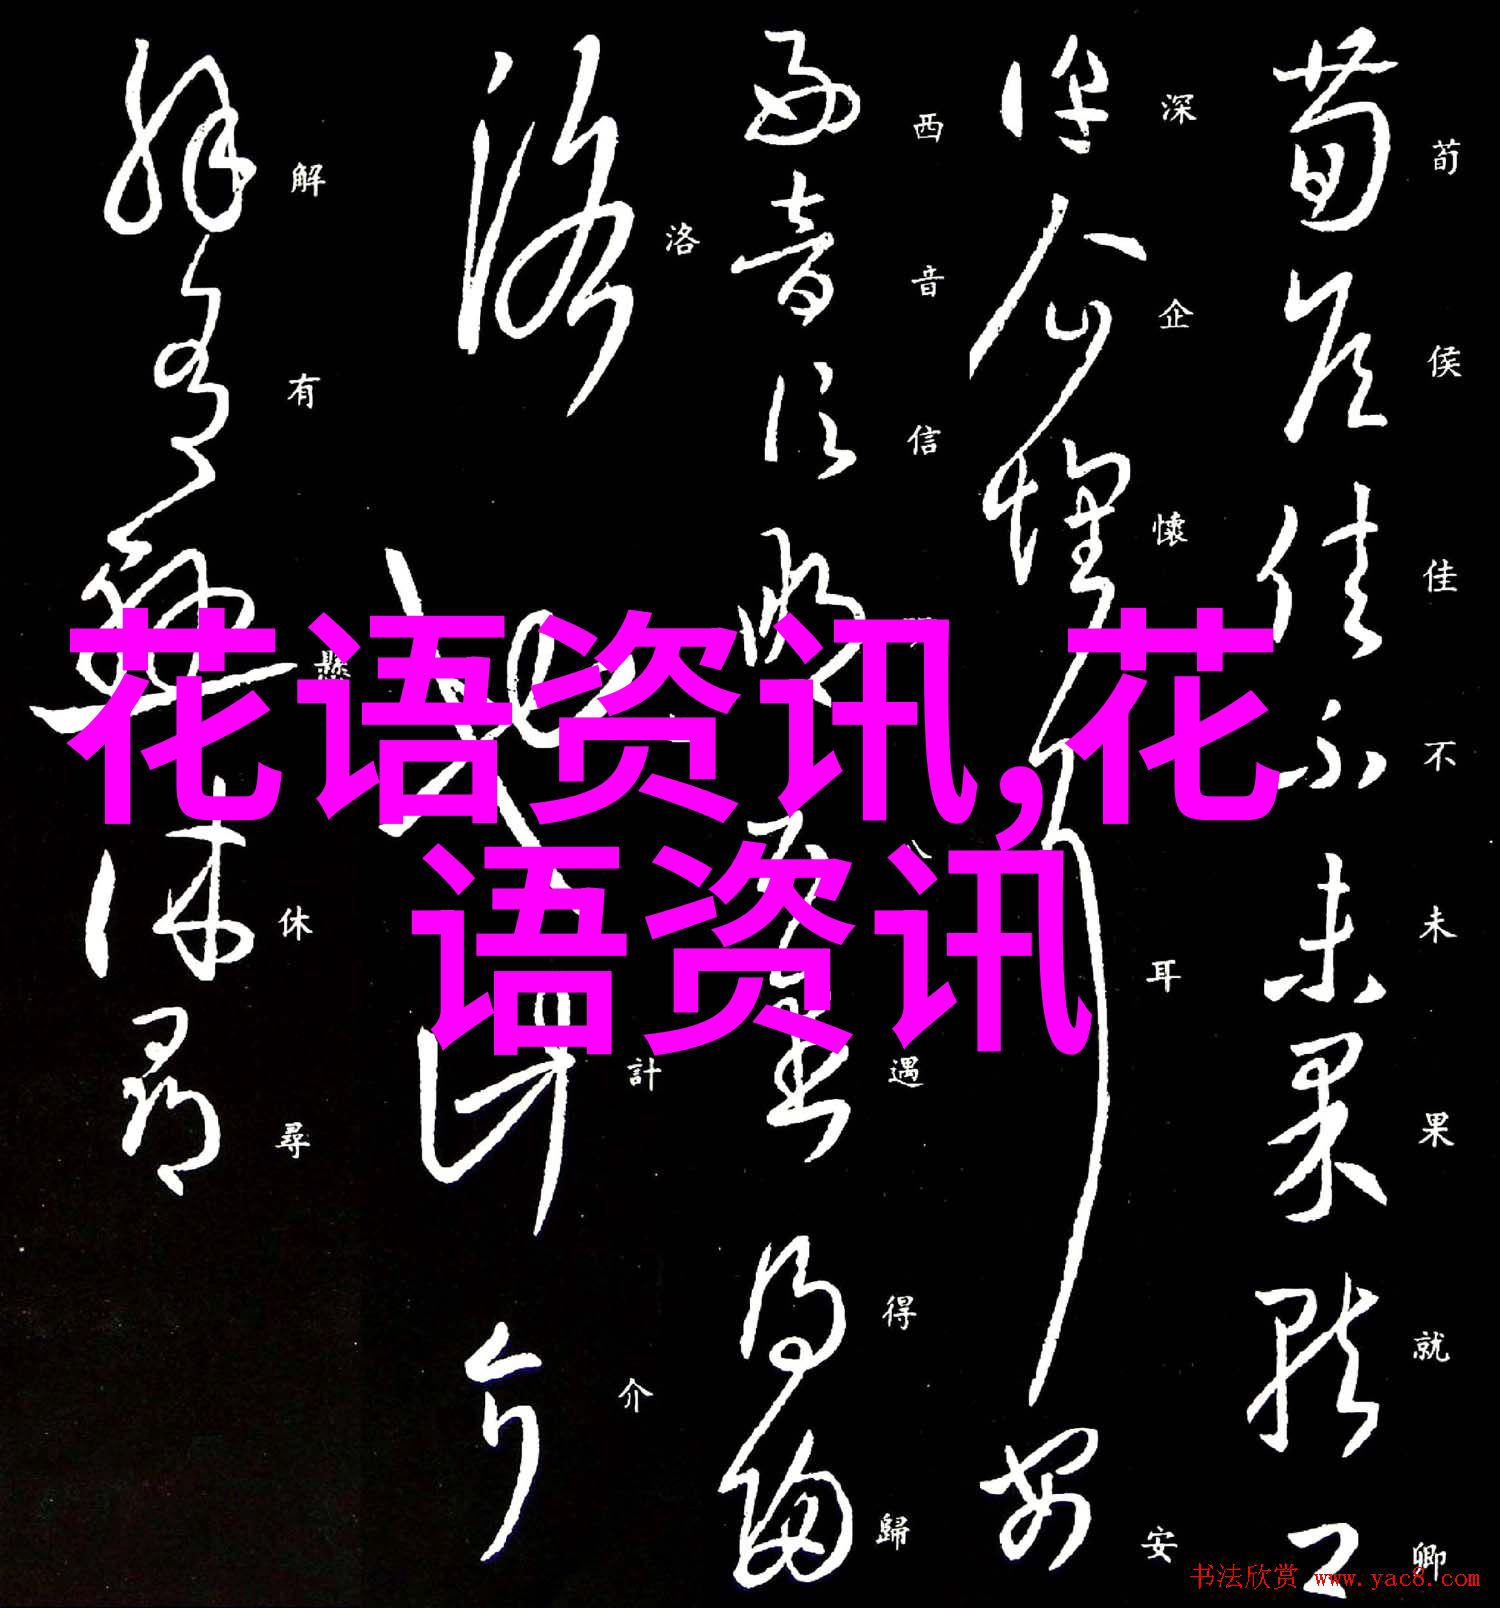 荀侯佳不未果就卿
深企懷耳安
西音信
遇得歸
洛
計介
解有懸休尋
花语资讯,花
语资讯
书法欣赏 www.yac8.com